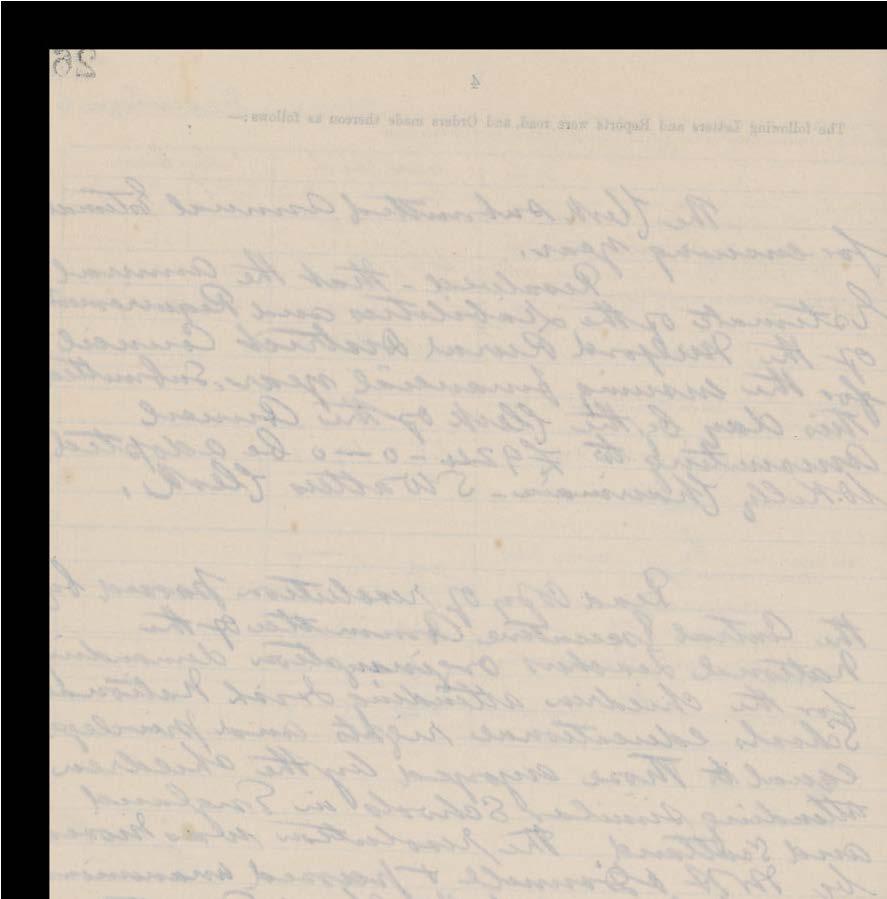 26
4
The following Letters and Reports were read, and Orders made thereon as follows:—
The Clerk submitted Annual Estimate
for ensuing year.
Resolved - that the Annual
Estimate of the Liabilities and Requirements
of the Milford Rural District Council
for the ensuing financial year, submitted
this day by the Clerk of the Council
amounting to £924 - 0 - 0 be adopted
Kelly Chairman - S Watters Clerk.
Read copy of resolution passed by
the Central Executive Committee of the
National Teachers Organization demanding
for the children attending Irish National
Schools educational rights and privileges
equal to those enjoyed by the children
attending similar Schools in England
and Scotland The resolution was
by Mr & passed